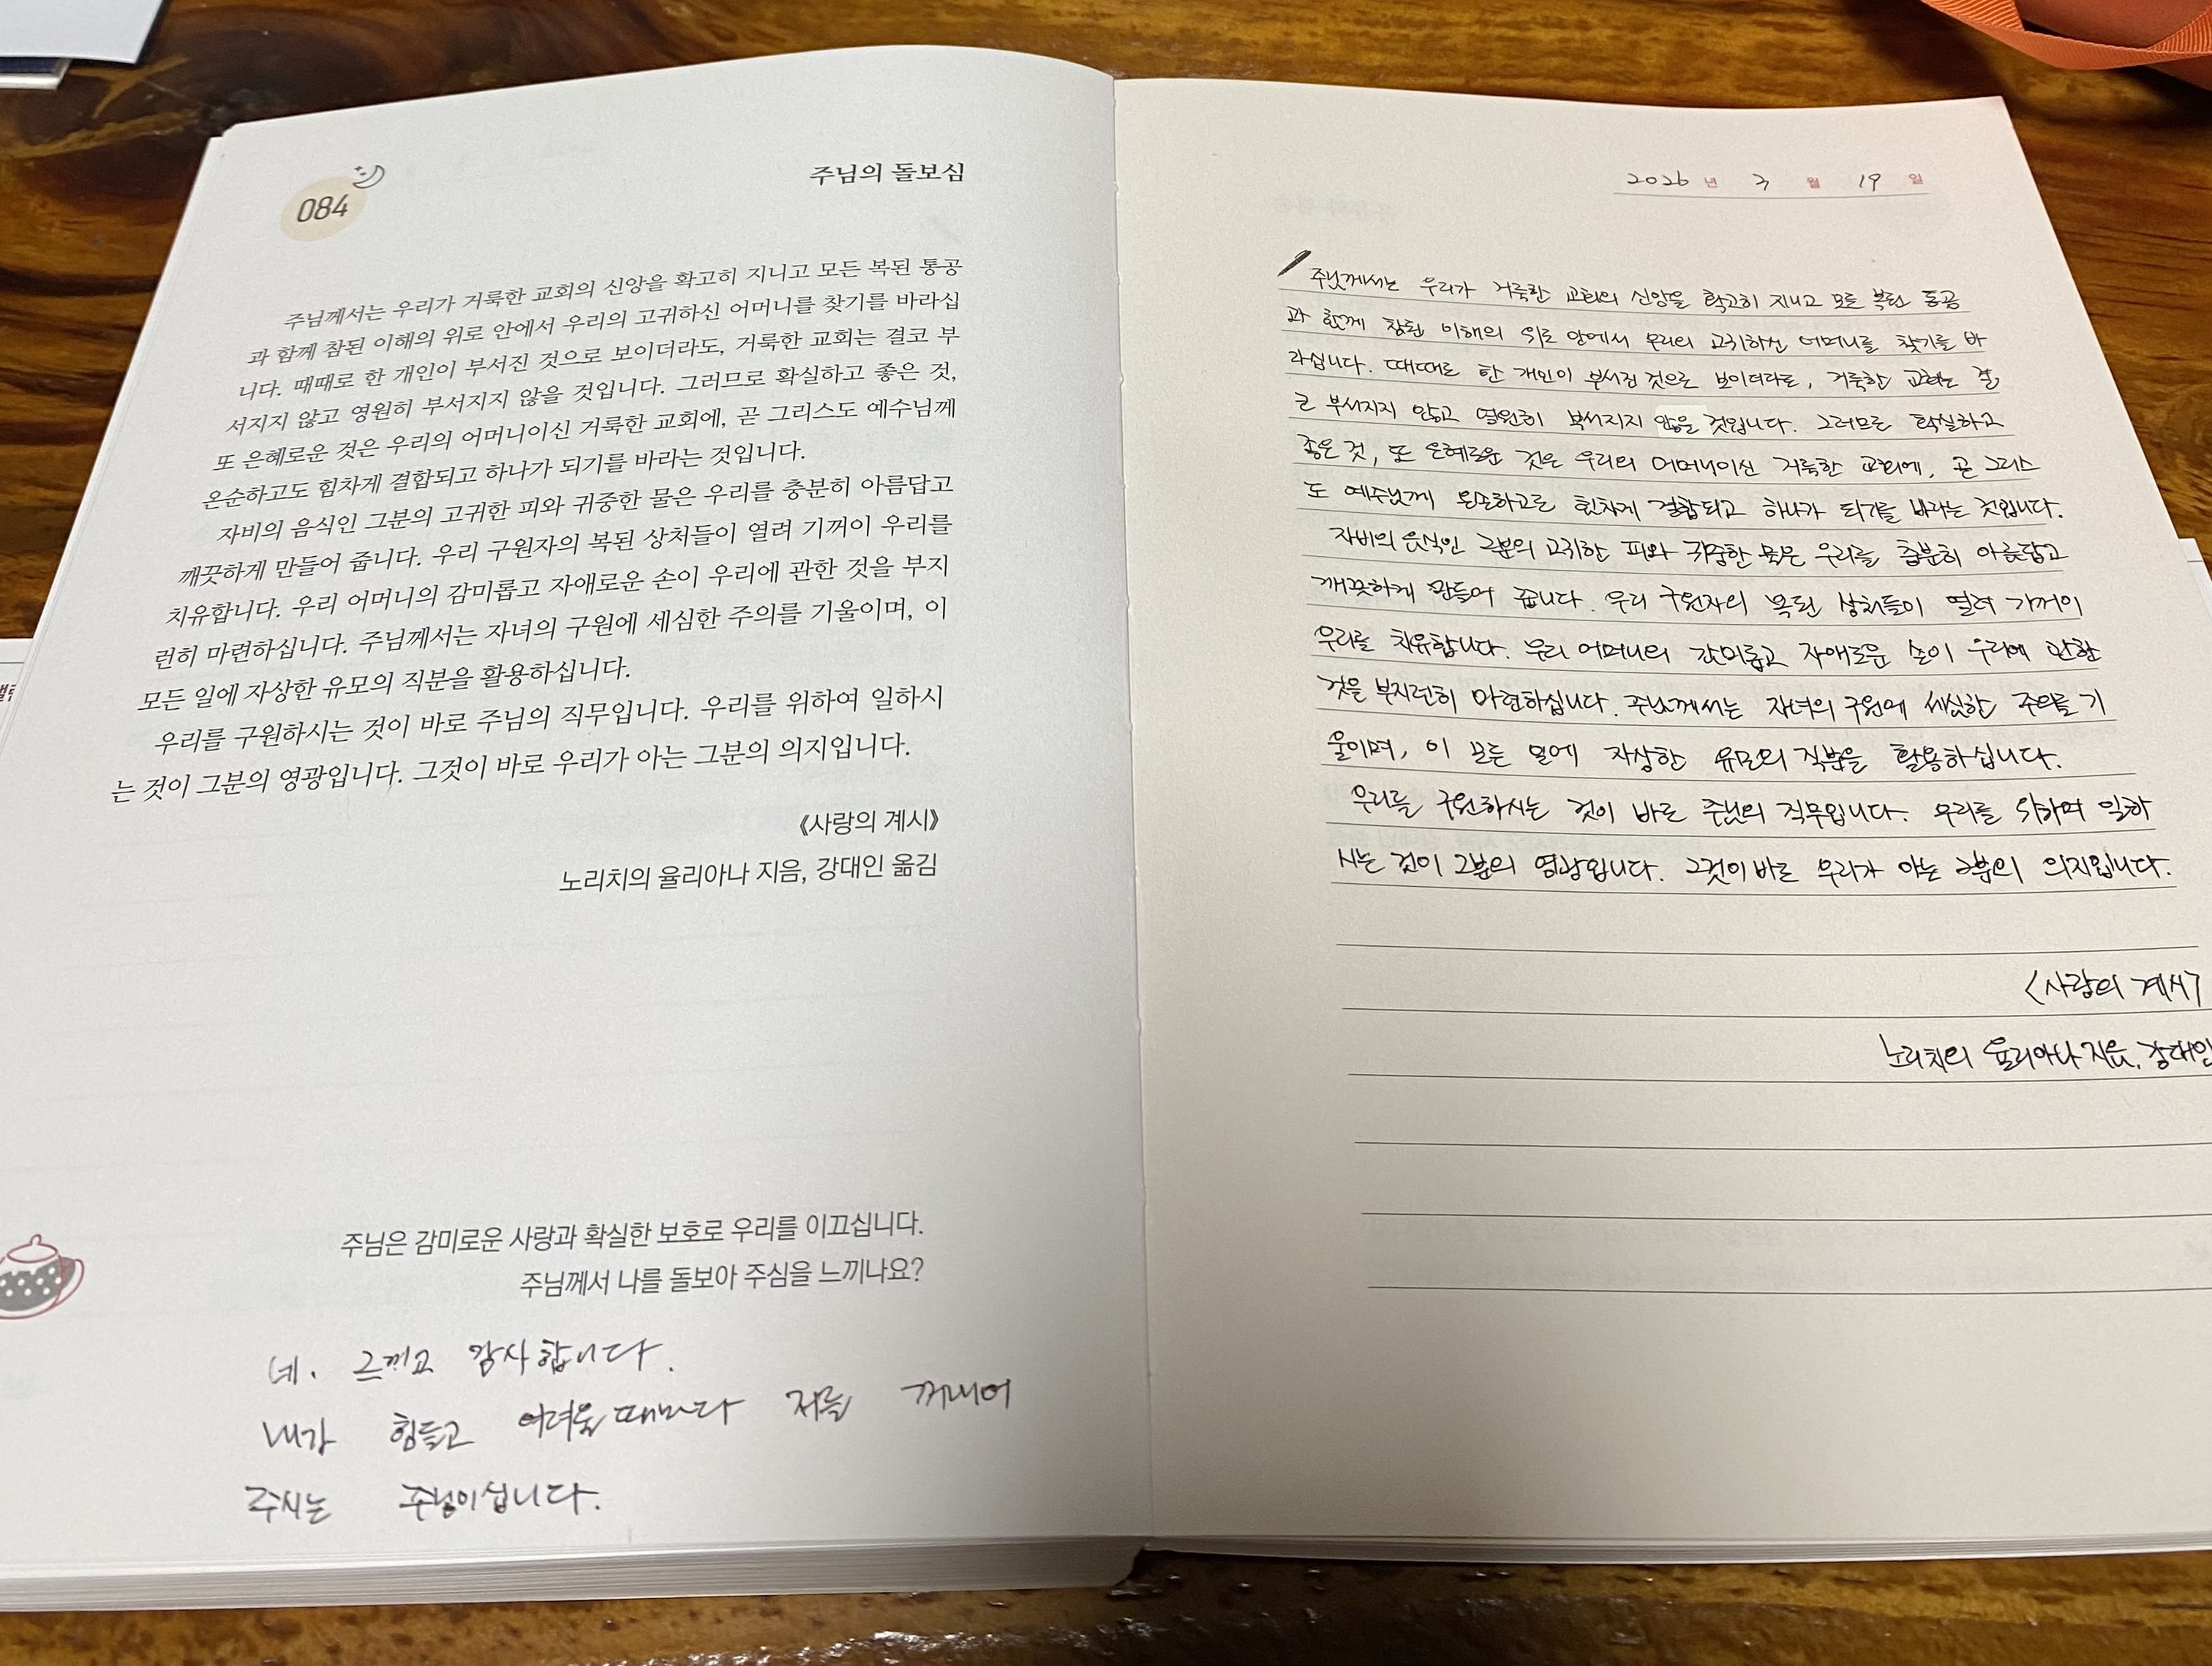 084
주님의 돌보심
주님께서는 우리가 거룩한 교회의 신앙을 확고히 지니고 모든 복된 통공
과 함께 참된 이해의 위로 안에서 우리의 고귀하신 어머니를 찾기를 바라십
니다. 때때로 한 개인이 부서진 것으로 보이더라도, 거룩한 교회는 결코 부
서지지 않고 영원히 부서지지 않을 것입니다. 그러므로 확실하고 좋은 것,
또 은혜로운 것은 우리의 어머니이신 거룩한 교회에, 곧 그리스도 예수님께
온순하고도 힘차게 결합되고 하나가 되기를 바라는 것입니다.
자비의 음식인 그분의 고귀한 피와 귀중한 물은 우리를 충분히 아름답고
깨끗하게 만들어 줍니다. 우리 구원자의 복된 상처들이 열려 기꺼이 우리를
치유합니다. 우리 어머니의 감미롭고 자애로운 손이 우리에 관한 것을 부지
런히 마련하십니다. 주님께서는 자녀의 구원에 세심한 주의를 기울이며, 이
모든 일에 자상한 유모의 직분을 활용하십니다.
우리를 구원하시는 것이 바로 주님의 직무입니다. 우리를 위하여 일하시
는 것이 그분의 영광입니다. 그것이 바로 우리가 아는 그분의 의지입니다.
《사랑의 계시》
노리치의 율리아나 지음, 강대인 옮김
주님은 감미로운 사랑과 확실한 보호로 우리를 이끄십니다.
주님께서 나를 돌보아 주심을 느끼나요?
네. 느끼고 감사합니다.
내가 힘들고 어려울때마다 저를 꺼내어
주시는 주님이십니다.
2026 년 3 월 19 일
주님께서는 우리가 거룩한 교회의 신앙을 확고히 지니고 모든 복된 통공
과 함께 참된 이해의 위로 안에서 우리의 고귀하신 어머니를 찾기를 바
라십니다. 때때로 한 개인이 부서진 것으로 보이더라도, 거룩한 교회는 결
코 부서지지 않고 영원히 부서지지 않을 것입니다. 그러므로 확실하고
좋은 것, 또 은혜로운 것은 우리의 어머니이신 거룩한 교회에, 곧 그리스
도 예수님께 온순하고도 힘차게 결합되고 하나가 되기를 바라는 것입니다.
자비의 음식인 그분의 고귀한 피와 귀중한 물은 우리를 충분히 아름답고
깨끗하게 만들어 줍니다. 우리 구원자의 복된 상처들이 열려 기꺼이
우리를 치유합니다. 우리 어머니의 감미롭고 자애로운 손이 우리에 관한
것을 부지런히 마련하십니다. 주님께서는 자녀의 구원에 세심한 주의를 기
울이며, 이 모든 일에 자상한 유모의 직분을 활용하십니다.
우리를 구원하시는 것이 바로 주님의 직무입니다. 우리를 위하여 일하
시는 것이 그분의 영광입니다. 그것이 바로 우리가 아는 그분의 의지입니다.
<사랑의 계시>
노리치의 율리아나 지음, 강대인